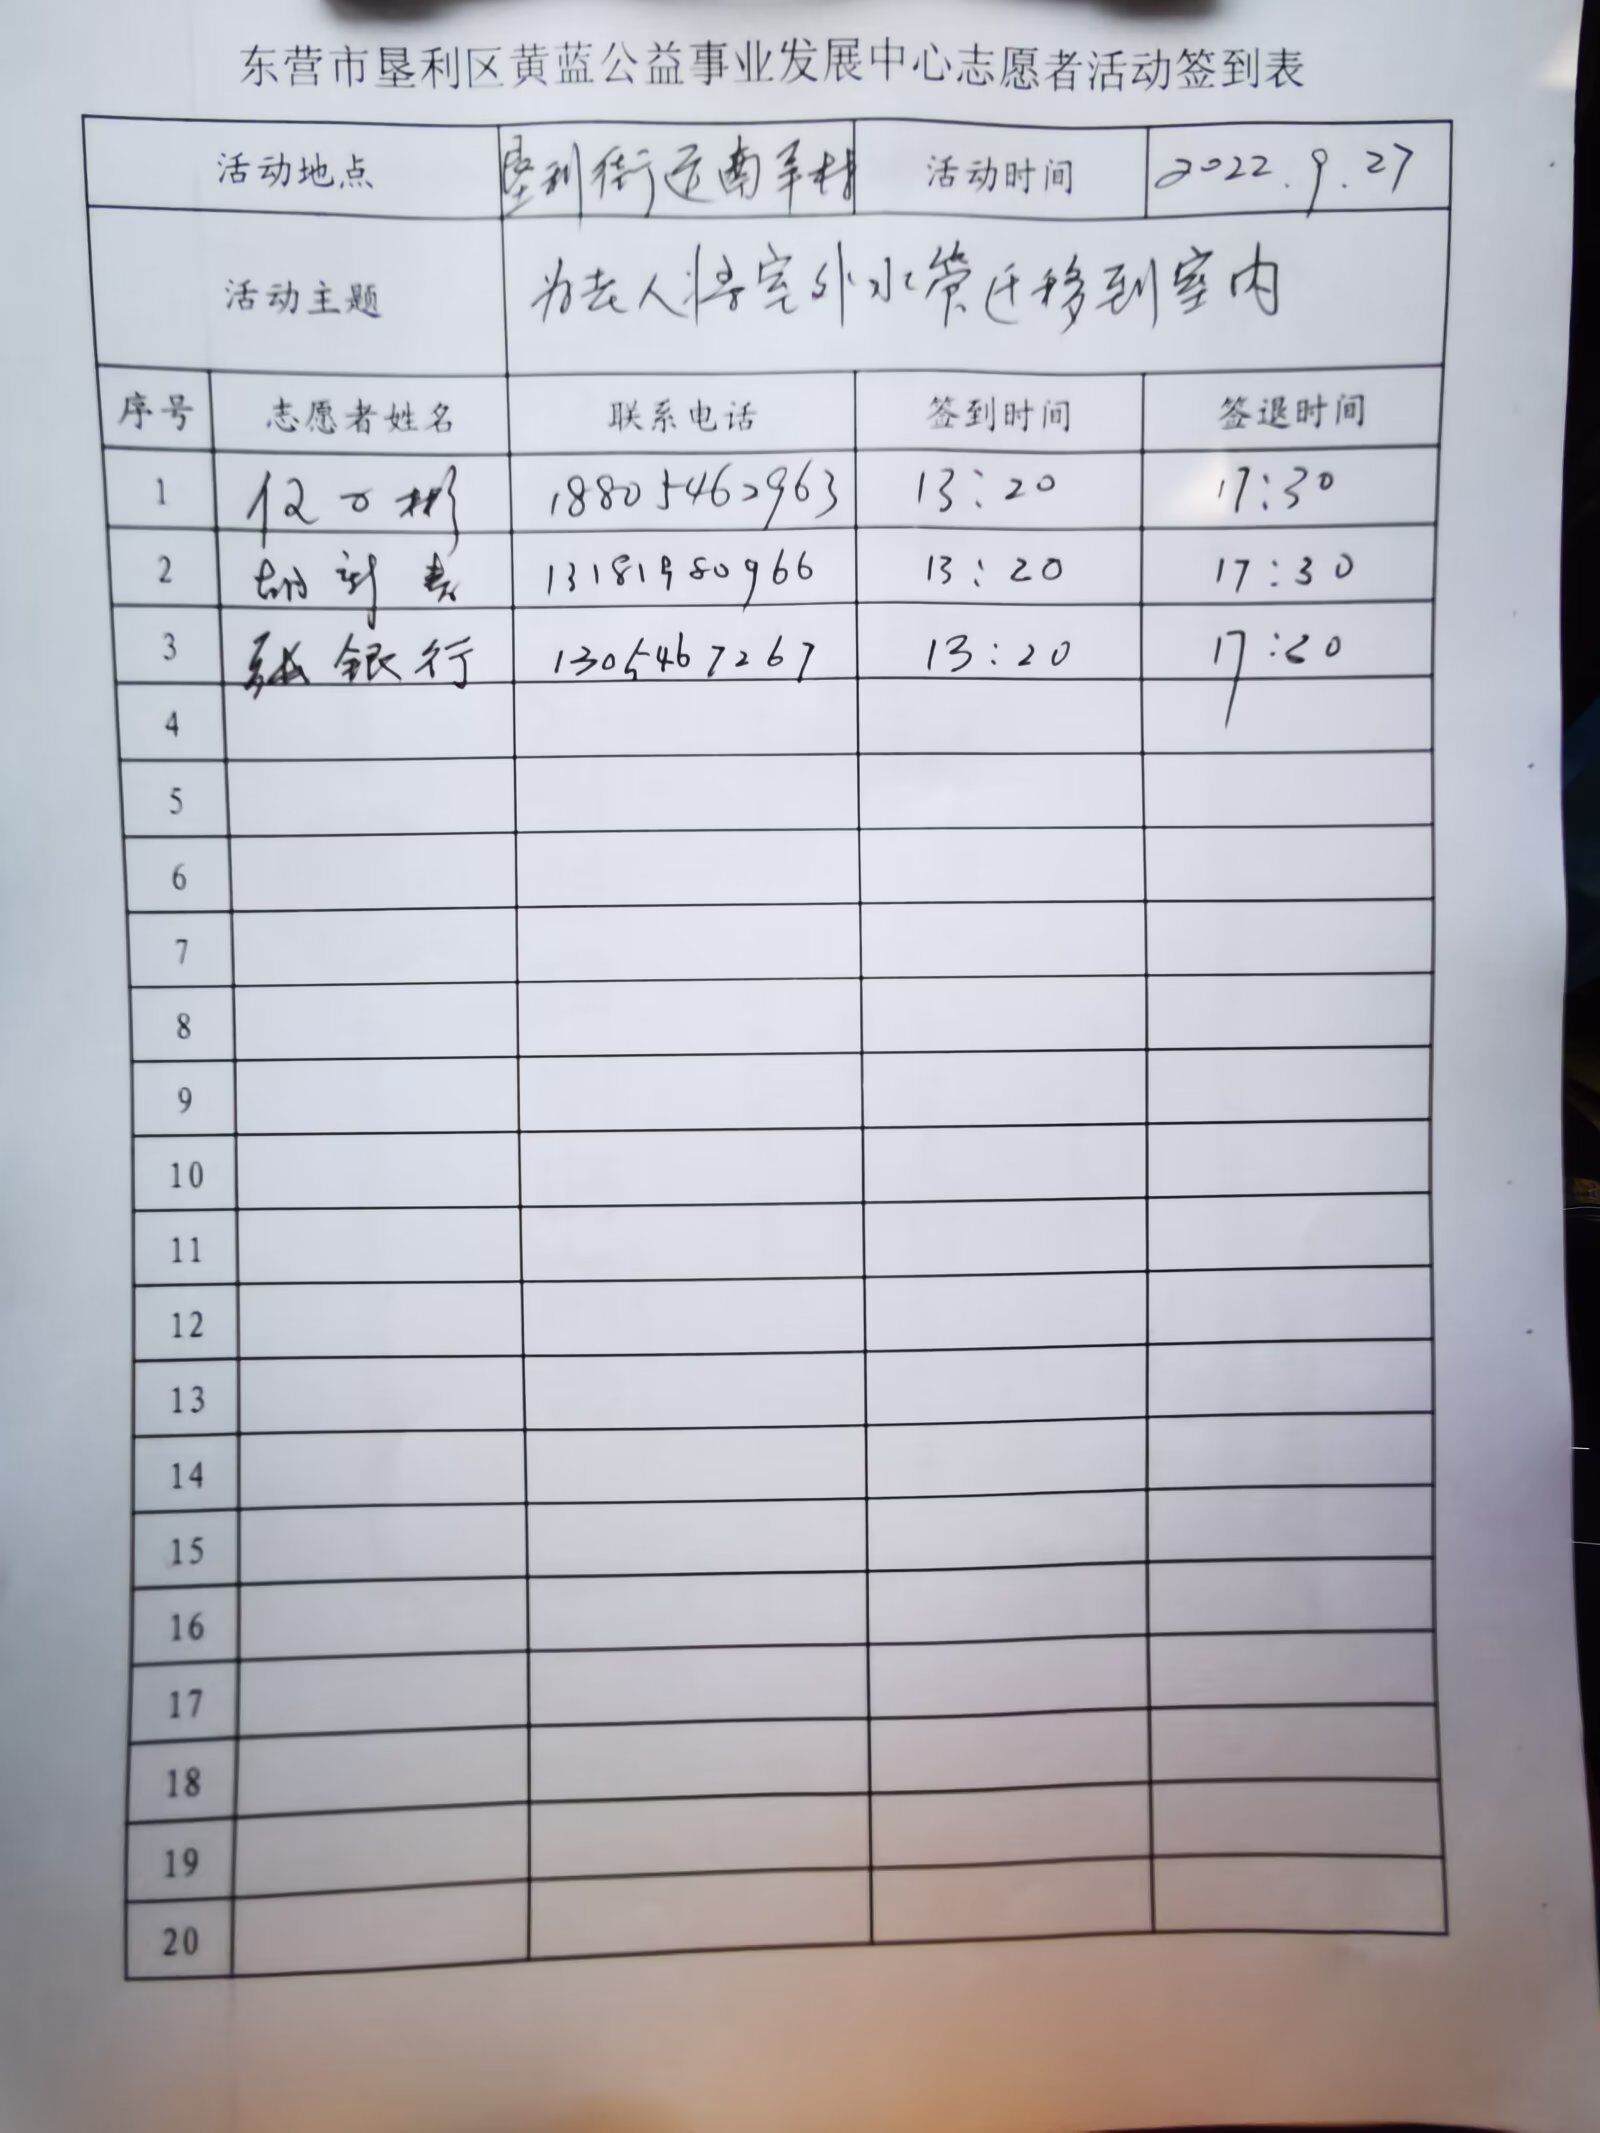 东营市垦利区黄蓝公益事业发展中心志愿者活动签到表
活动地点 垦利街道南羊村 活动时间 2022.9.27
活动主题 为老人将室外水管迁移到室内
序号 志愿者姓名 联系电话 签到时间 签退时间
1 彬 18805462963 13:20 17:30
2 胡新春 13181980966 13:20 17:30
3 张银行 1305467267 13:20 17:30
4
5
6
7
8
9
10
11
12
13
14
15
16
17
18
19
20